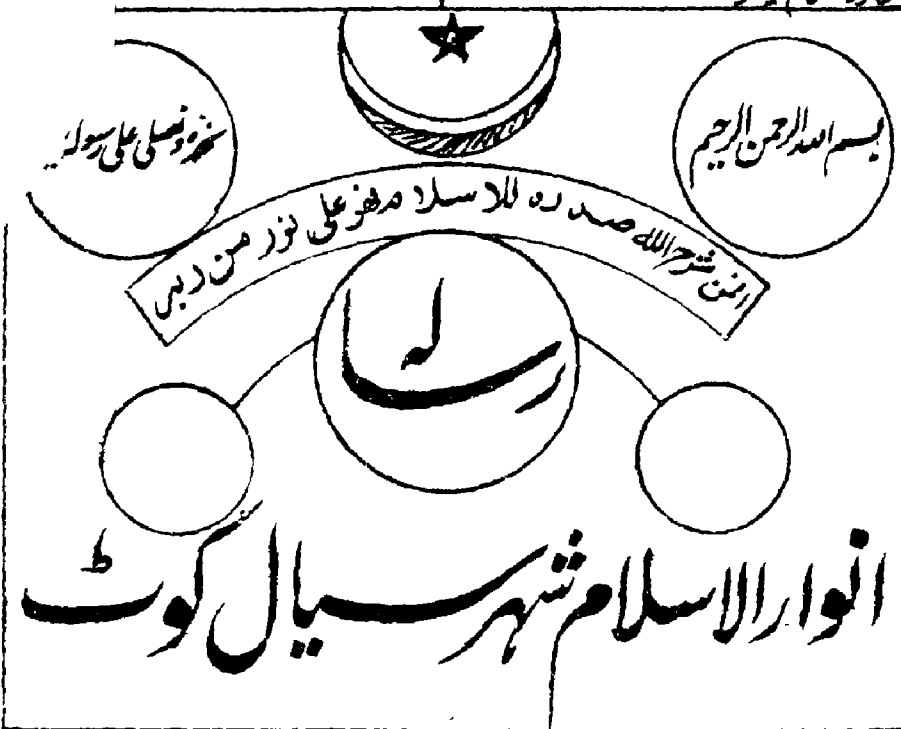 بسم الله الرحمن الرحيم
نحمده ونصلی علی رسوله
افمن شرح الله صدره للاسلام فهو علی نور من ربه
رسالہ
انوار الاسلام شہر سیال کوٹ